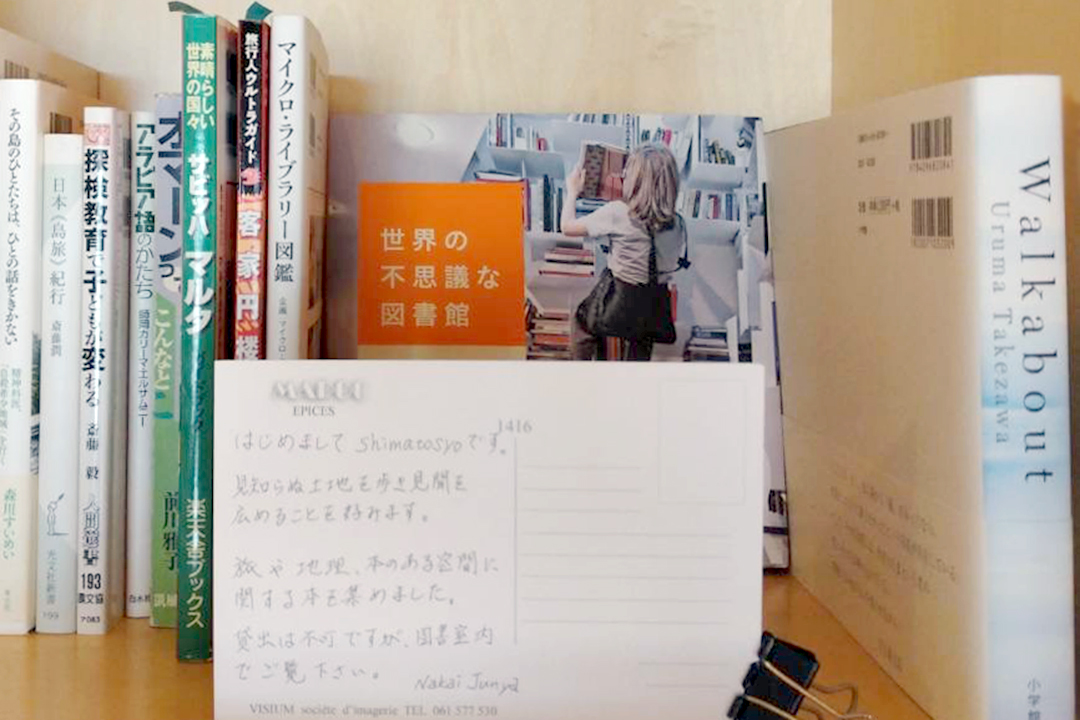 その島のひとたちは、ひとの話をきかない
森川すいめい
日本《島旅》紀行 斎藤潤
光文社新書
探検教育で子どもが変わる 斎藤 毅
193
農文協
アラビア語のかたち 師岡カリーマ・エルサムニー
白水社
オマーン
こんなとこ
前川雅子
素晴らしい
世界の国々
サビッハ マルタ
ガイドブック
楽天舎ブックス
旅行人ウルトラガイド
客家円楼
マイクロ・ライブラリー図鑑
世界の
不思議な
図書館
Walkabout
Uruma Takezawa
EPICES
1416
はじめまして shimatosyoです。
見知らぬ土地を歩き見聞を
広めることを好みます。
旅や地理、本のある空間に
関する本を集めました。
貸出は不可ですが、図書室内
でご覧下さい。
Nakai Junya
VISIUM société d'imagerie TEL 061 577 530